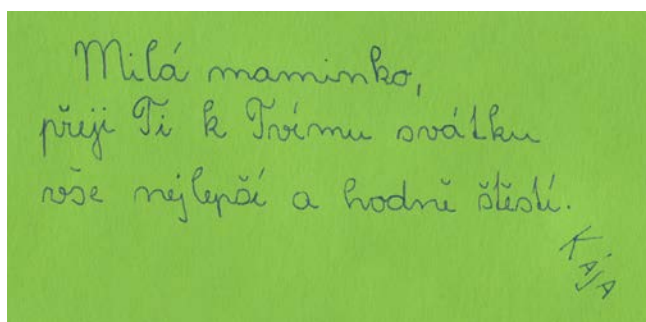 Milá maminko,
přeji Ti k Tvímu svátku
vše nejlepší a hodně štěstí.
KÁJA